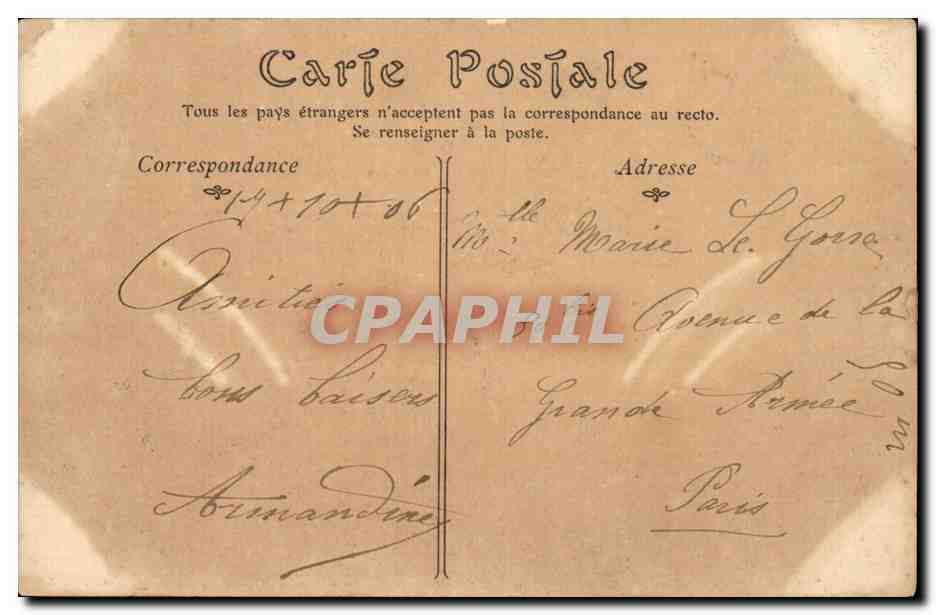 Carte Postale
Tous les pays étrangers n'acceptent pas la correspondance au recto.
Se renseigner à la poste.
Correspondance
+ 10 + 06
Amitiés
bons baisers
Armandine
Adresse
Mlle Marie Le
bis Avenue de la
Grande Armée
Paris
CPAPHIL